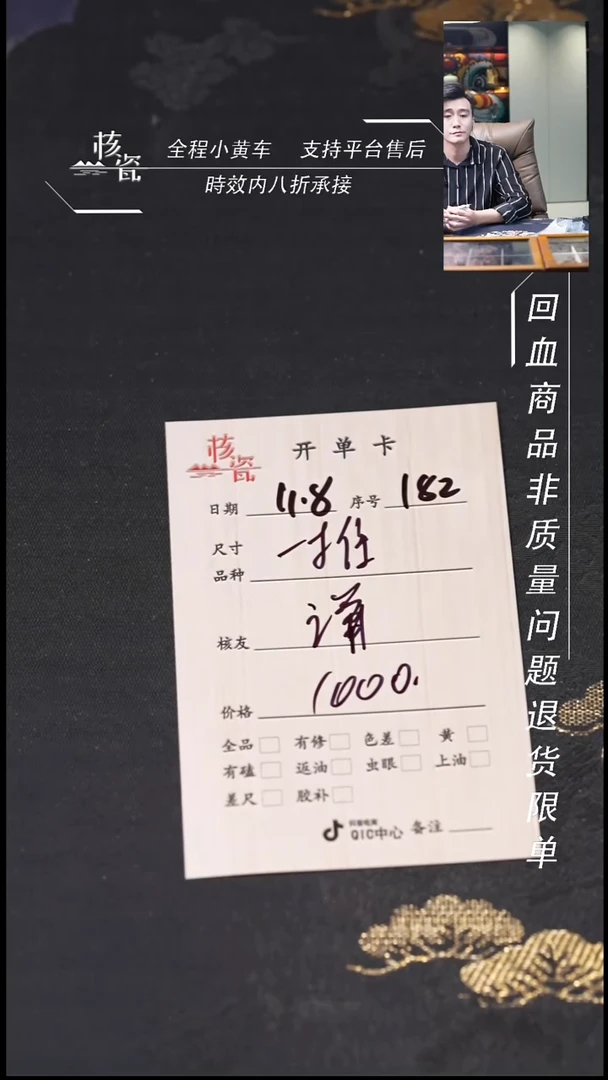 核瓷
全程小黄车 支持平台售后
時效内八折承接
回血商品非质量问题退货限单
核瓷
开单卡
日期 11.8 序号 182
尺寸
品种
核友
价格 1000.
全品 有修 色差 黄
有磕 返油 虫眼 上油
差尺 胶补
抖音电商
QIC中心 备注